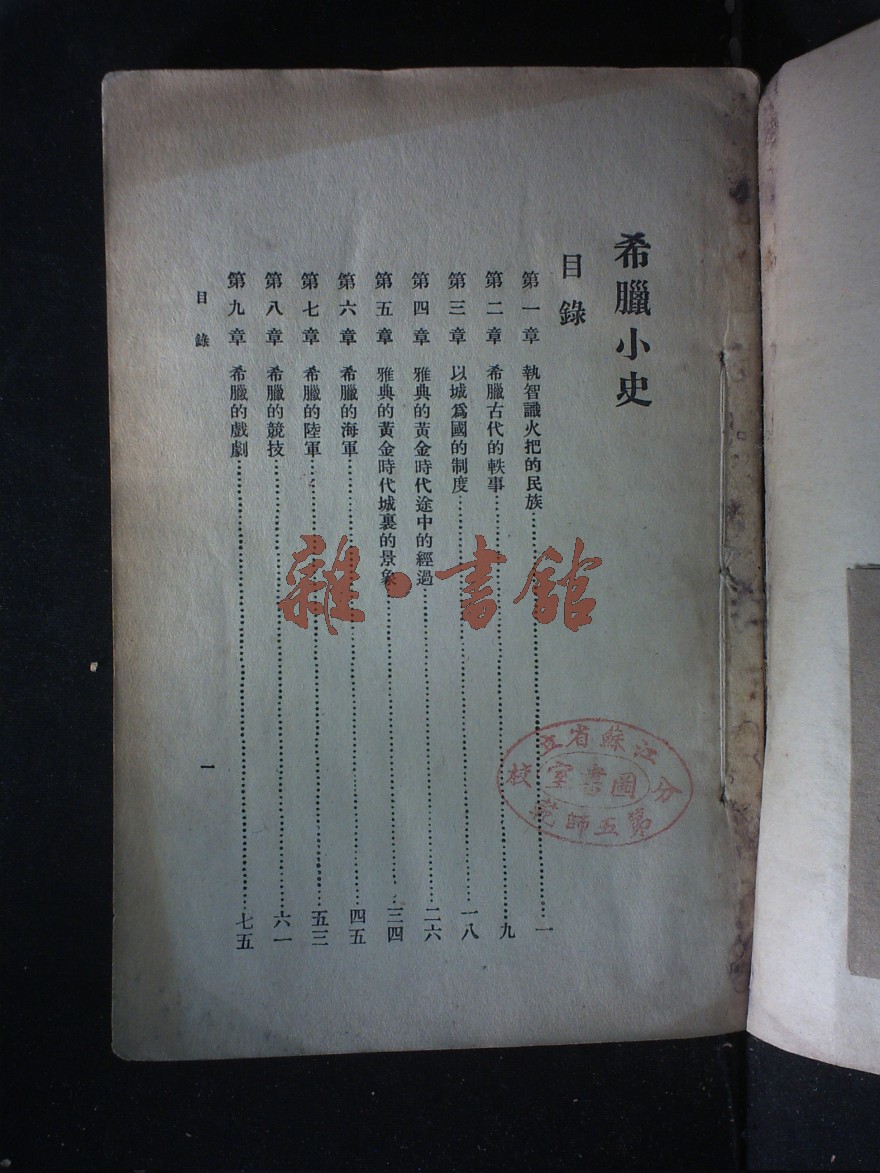 希臘小史
目錄
第一章 執智識火把的民族……一
第二章 希臘古代的軼事……九
第三章 以城爲國的制度……一八
第四章 雅典的黃金時代途中的經過……二六
第五章 雅典的黃金時代城裏的景象……三四
第六章 希臘的海軍……四五
第七章 希臘的陸軍……五三
第八章 希臘的競技……六一
第九章 希臘的戲劇……七五
目錄
一
雜·書館
江蘇省立
第五師範
分校
圖書室